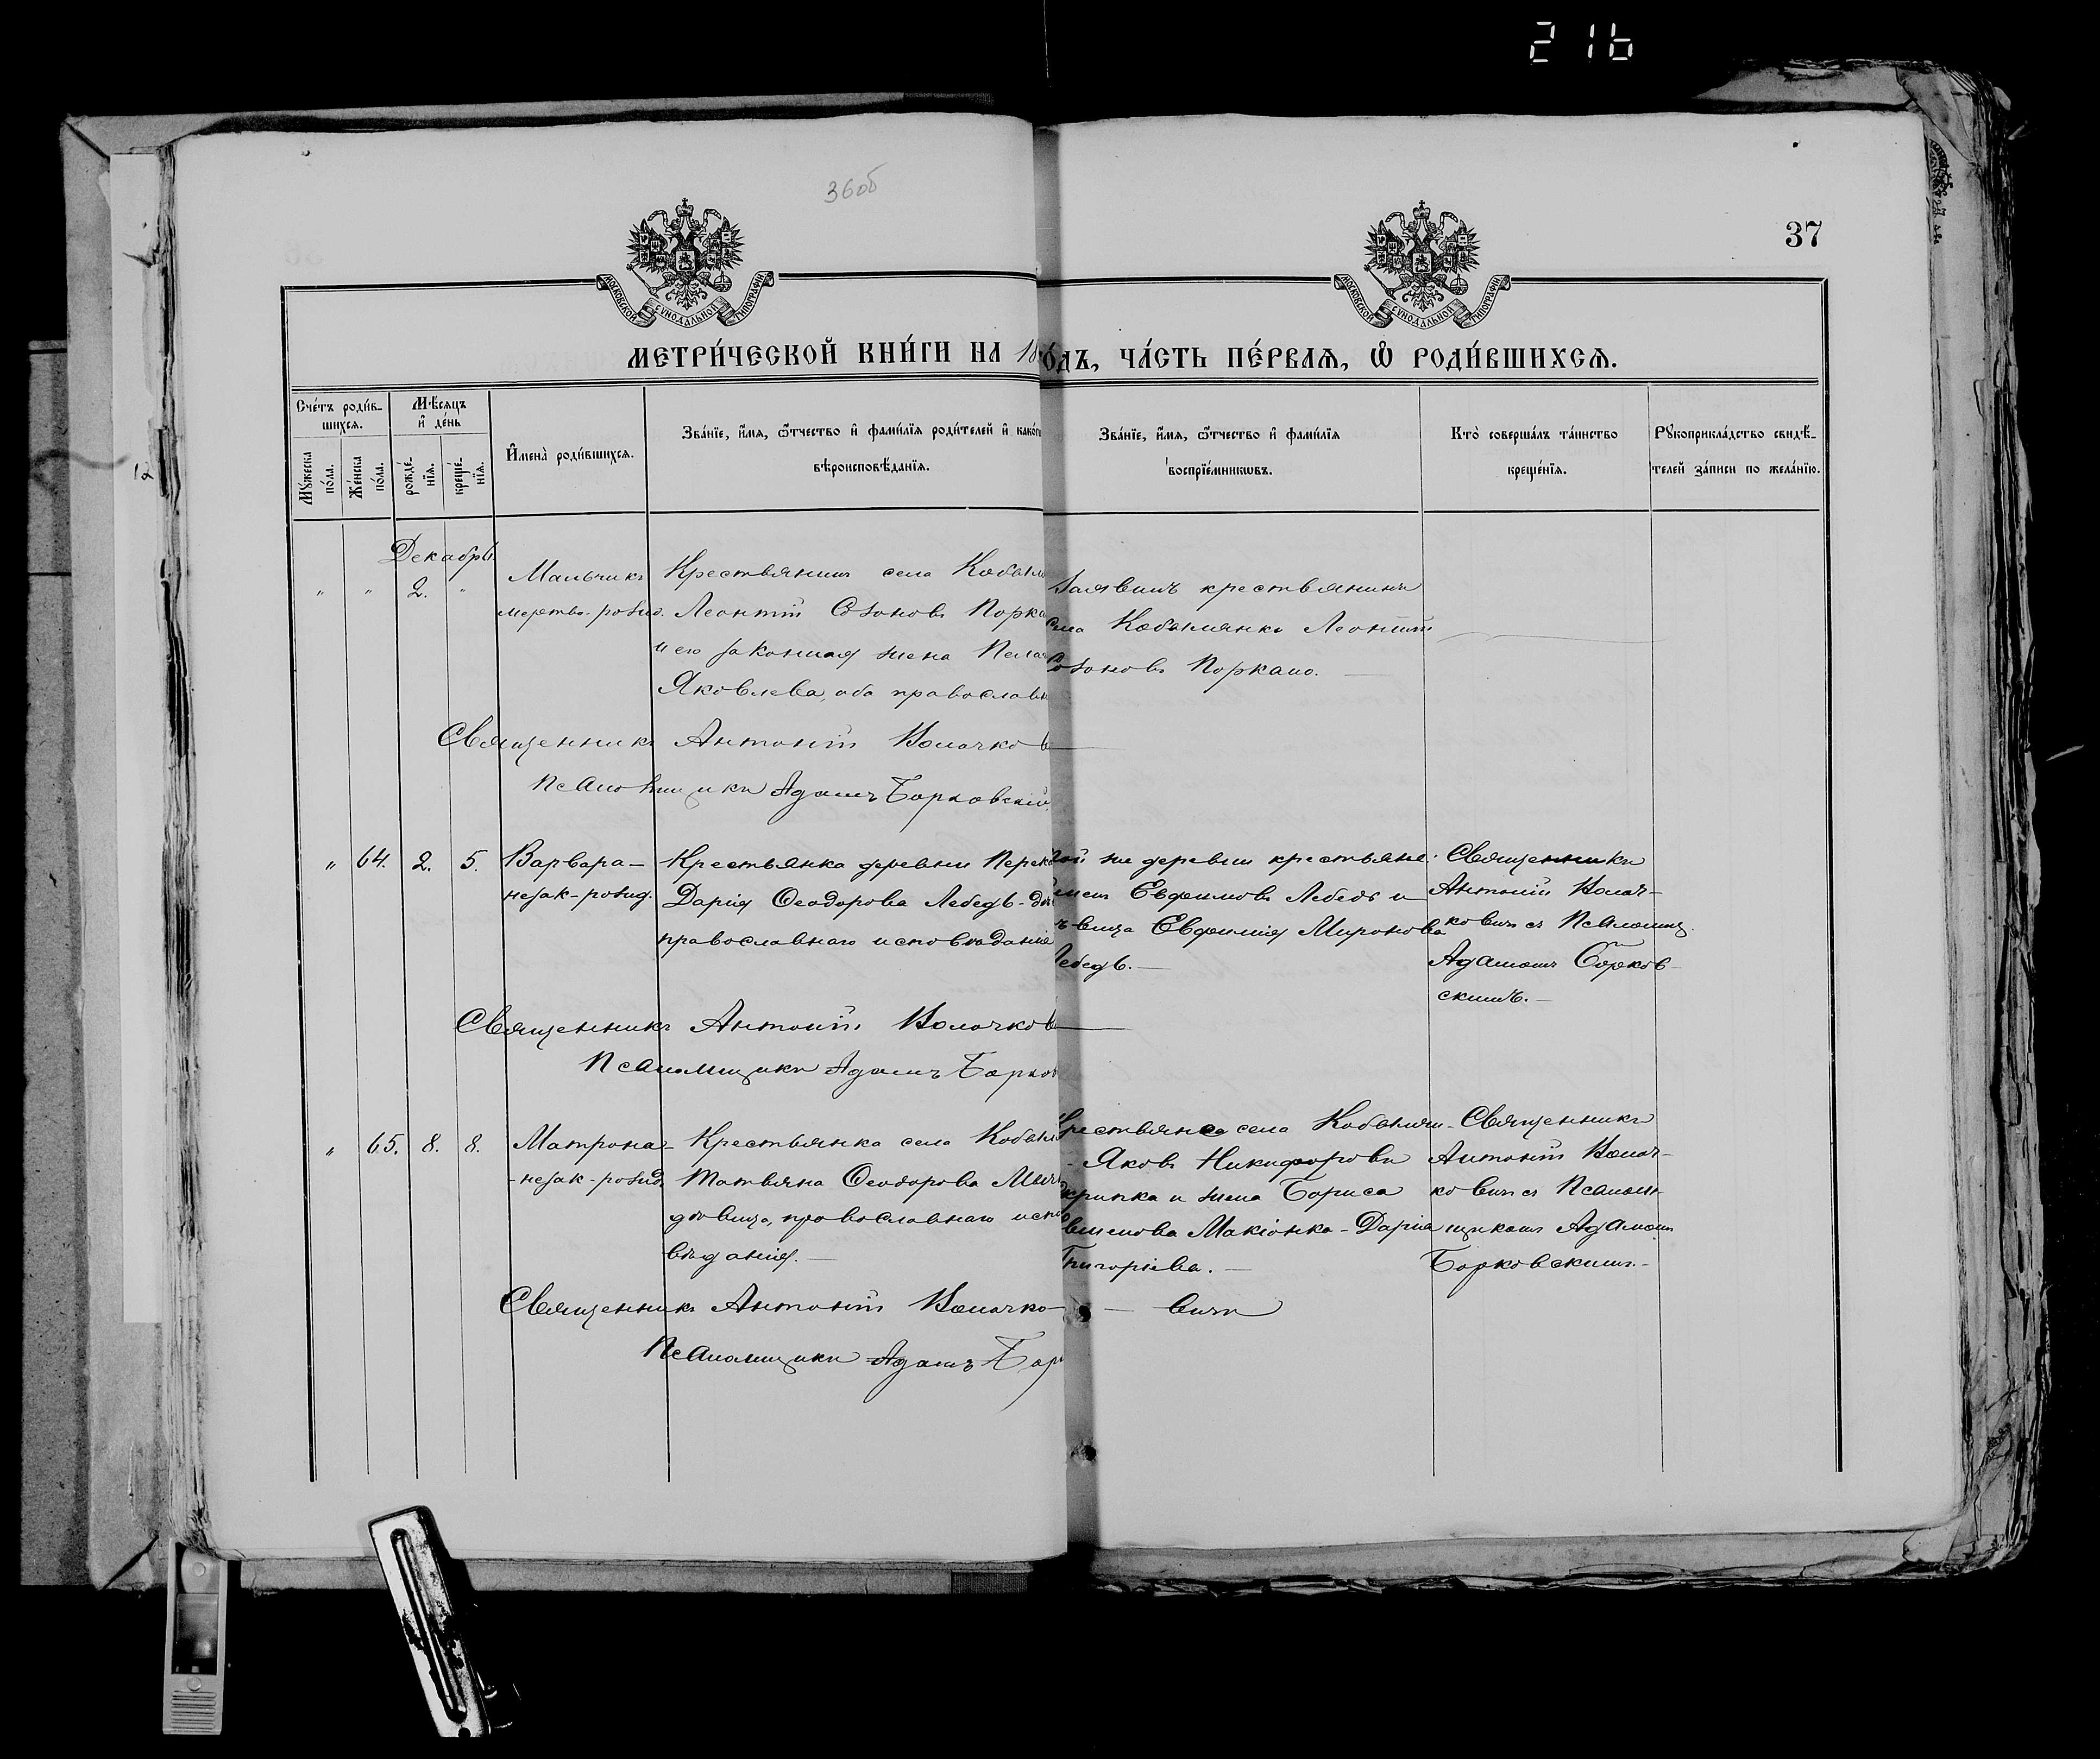 216
36об
37
МОСКОВСКОЙ СѴНОДАЛЬНОЙ ТИПОГРАФІИ
МОСКОВСКОЙ СѴНОДАЛЬНОЙ ТИПОГРАФІИ
МЕТРИ́ЧЕСКОЙ КНИ́ГИ НА 18
ОДЪ, ЧА́СТЬ ПЕ́РВАѦ, Ѡ РОДИ́ВШИХСѦ.
Счétъ роди́в-
шихсѧ.
Мѣ́сѧцъ
и҆ де́нь
Мꙋ́жеска
по́ла.
Же́нска
по́ла.
рожде́-
нїѧ.
креще́-
нїѧ.
И҆мена̀ роди́вшихсѧ.
Зва́нїе, и҆́мѧ, ѻ҆́тчество и҆ фами́лїѧ роди́телей и҆ како́гѡ
вѣроисповѣ́данїѧ.
Зва́нїе, и҆́мѧ, ѻ҆́тчество и҆ фами́лїѧ
воспрїе́мникѡвъ.
Кто̀ соверша́лъ та́инство
креще́нїѧ.
Рꙋкоприкла́дство свидѣ́-
телей за́писи по жела́нїю.
Декабрь
" " 2. "
Мальчикъ
мертво-рожд.
Крестьянинъ села Кобыл
Леонтій Созоновъ Порка
и его законная жена Пела
Яковлева, оба православн
Заявилъ крестьянинъ
села Кобылянки Леонтій
Созоновъ Поркало.
Священникъ Антоній Волочков
Псаломщикъ Адамъ Борковскій
" 64. 2. 5.
Варвара-
незак-рожд.
Крестьянка деревни Перек
Дарія Ѳеодорова Лебедь-дѣ
православнаго исповѣданія
той же деревни крестьяне:
Евфимовъ Лебедь и
вица Евфимія Миронова
Лебедь.
Священникъ
Антоній Волоч-
ковичъ съ Псаломщ.
Адамомъ Борков-
скимъ.
Священникъ Антоній Волочков
Псаломщикъ Адамъ Борков
" 65. 8. 8.
Матрона-
-незак-рожд.
Крестьянка села Кобыл
Татьяна Ѳеодорова
дѣвица, православнаго испо
вѣданія.
Крестьяне села Кобылян-
Яковъ Никифоровъ
и жена Бориса
Макіонка-Дарія
Григоріева.
Священникъ
Антоній Волоч-
ковичъ съ Псалом-
щикомъ Адамомъ
Борковскимъ.
Священникъ Антоній Волочко
— вичъ
Псаломщикъ Адамъ Бор